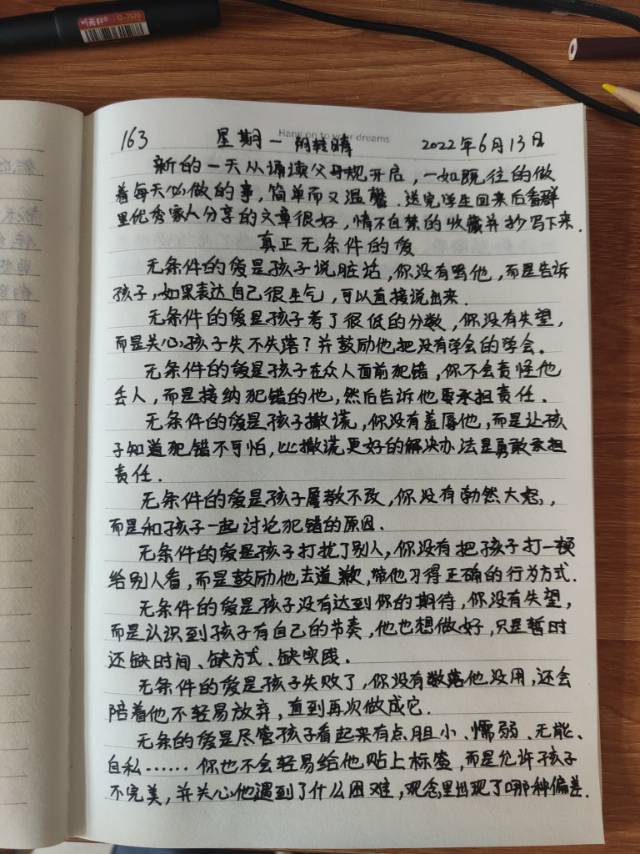 163 星期一 阴转晴 2022年6月13日
Hang on to your dreams
新的一天从诵读父母规开启,一如既往的做
着每天必做的事,简单而又温馨。送完学生回来后看群
里优秀家人分享的文章很好,情不自禁的收藏并抄写下来.
真正无条件的爱
无条件的爱是孩子说脏话,你没有骂他,而是告诉
孩子,如果表达自己很生气,可以直接说出来.
无条件的爱是孩子考了很低的分数,你没有失望,
而是关心孩子失不失落?并鼓励他把没有学会的学会。
无条件的爱是孩子在众人面前犯错,你不会责怪他
丢人,而是接纳犯错的他,然后告诉他要承担责任.
无条件的爱是孩子撒谎,你没有羞辱他,而是让孩
子知道犯错不可怕,比撒谎更好的解决办法是勇敢承担
责任.
无条件的爱是孩子屡教不改,你没有勃然大怒,
而是和孩子一起讨论犯错的原因.
无条件的爱是孩子打扰了别人,你没有把孩子打一顿
给别人看,而是鼓励他去道歉,带他习得正确的行为方式.
无条件的爱是孩子没有达到你的期待,你没有失望,
而是认识到孩子有自己的节奏,他也想做好,只是暂时
还缺时间、缺方式、缺实践.
无条件的爱是孩子失败了,你没有数落他没用,还会
陪着他不轻易放弃,直到再次做成它.
无条的爱是尽管孩子看起来有点胆小、懦弱、无能、
自私……你也不会轻易给他贴上标签,而是允许孩子
不完美,并关心他遇到了什么困难,观念里出现了哪种偏差.